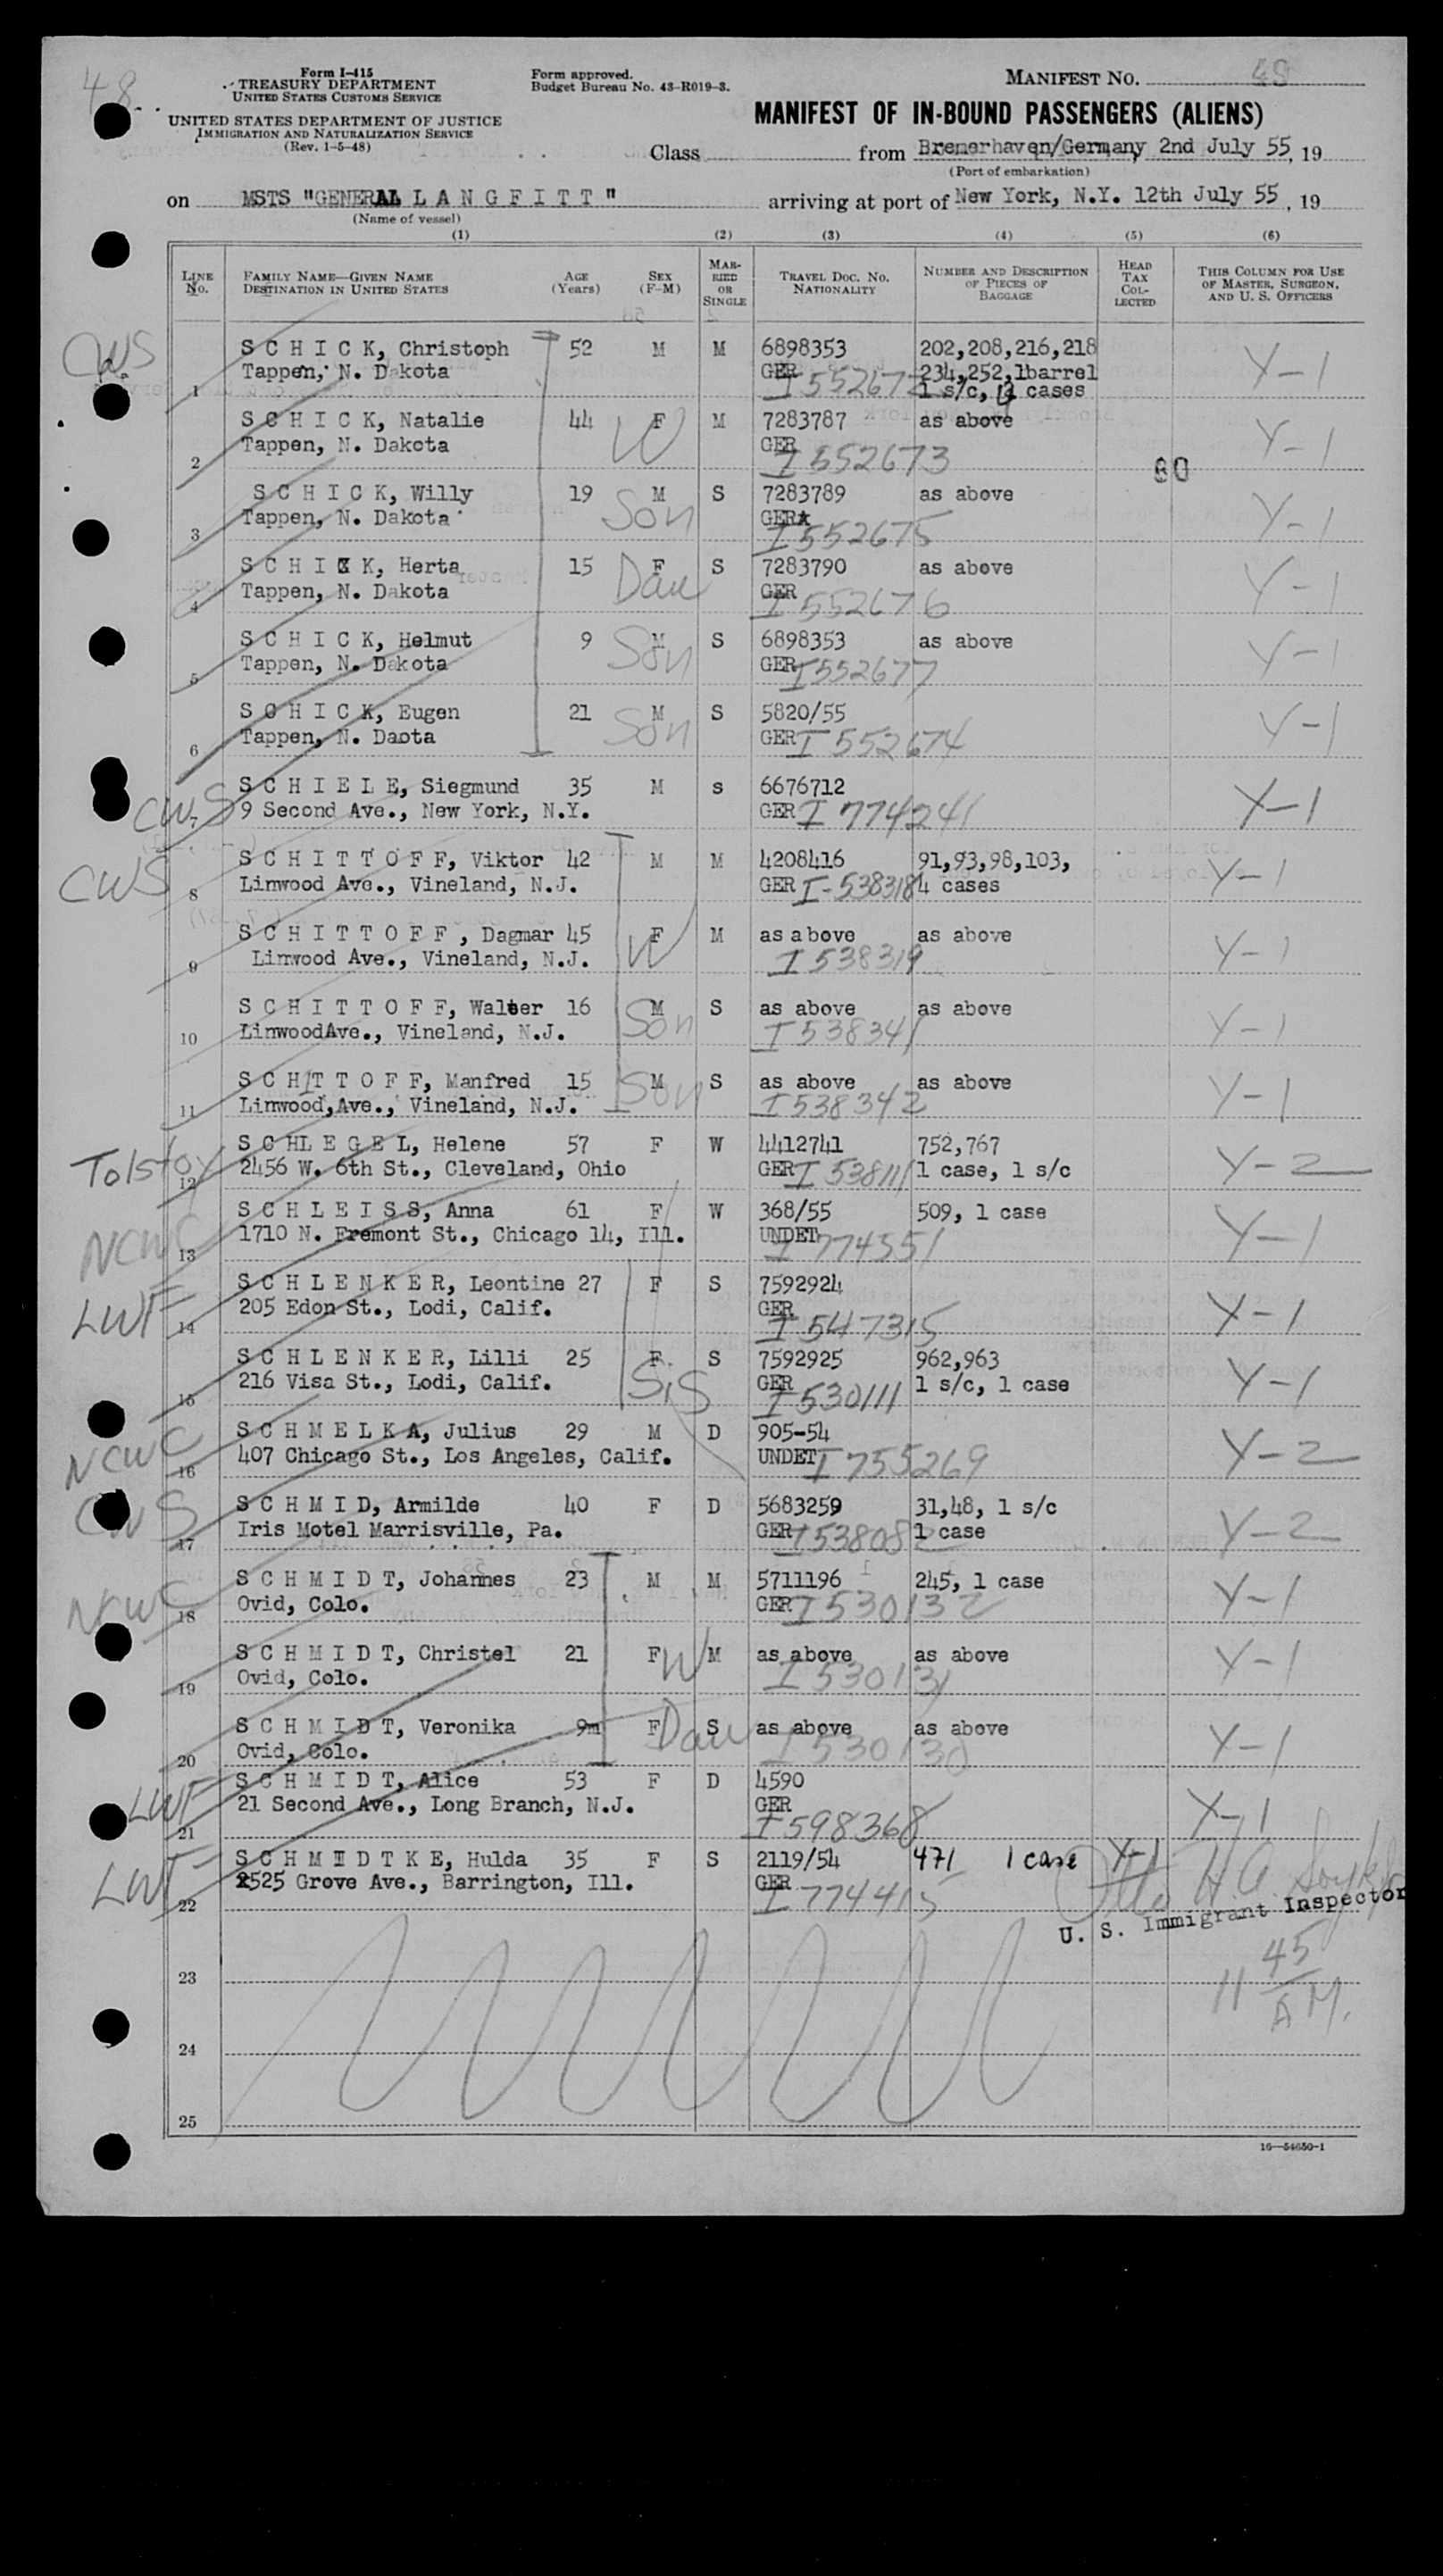 48
Form I-415
TREASURY DEPARTMENT
UNITED STATES CUSTOMS SERVICE
UNITED STATES DEPARTMENT OF JUSTICE
IMMIGRATION AND NATURALIZATION SERVICE
(Rev. 1-5-48)
Form approved.
Budget Bureau No. 43-R019-3.
MANIFEST NO. 48
MANIFEST OF IN-BOUND PASSENGERS (ALIENS)
Class from Bremerhaven/Germany 2nd July 55, 19
(Port of embarkation)
on MSTS "GENERAL L A N G F I T T" arriving at port of New York, N.Y. 12th July 55, 19
(Name of vessel)
(1) (2) (3) (4) (5) (6)
LINE No. FAMILY NAME—GIVEN NAME DESTINATION IN UNITED STATES AGE (Years) SEX (F-M) MARRIED OR SINGLE TRAVEL DOC. NO. NATIONALITY NUMBER AND DESCRIPTION OF PIECES OF BAGGAGE HEAD TAX COLLECTED THIS COLUMN FOR USE OF MASTER, SURGEON, AND U. S. OFFICERS
CWS S C H I C K, Christoph 52 M M 6898353 202,208,216,218
1 Tappen, N. Dakota GER I 552672 234,252,1barrel Y-1
1 s/c, cases
S C H I C K, Natalie 44 F M 7283787 as above
2 Tappen, N. Dakota W GER I 552673 Y-1
60
S C H I C K, Willy 19 M S 7283789 as above
3 Tappen, N. Dakota Son GER I 552675 Y-1
S C H I C K, Herta 15 F S 7283790 as above
4 Tappen, N. Dakota Dau GER I 552676 Y-1
S C H I C K, Helmut 9 M S 6898353 as above
5 Tappen, N. Dakota Son GER I 552677 Y-1
S C H I C K, Eugen 21 M S 5820/55
6 Tappen, N. Daota Son GER I 552674 Y-1
S C H I E L E, Siegmund 35 M s 6676712
CWS 7 9 Second Ave., New York, N.Y. GER I 774241 Y-1
S C H I T T O F F, Viktor 42 M M 4208416 91,93,98,103,
CWS 8 Linwood Ave., Vineland, N.J. GER I-538318 4 cases Y-1
S C H I T T O F F, Dagmar 45 F M as above as above
9 Linwood Ave., Vineland, N.J. W I 538319 Y-1
S C H I T T O F F, Walter 16 M S as above as above
10 LinwoodAve., Vineland, N.J. Son I 538341 Y-1
S C H I T T O F F, Manfred 15 M S as above as above
11 Linwood,Ave., Vineland, N.J. Son I 538342 Y-1
Tolstoy S C HL E G E L, Helene 57 F W 4412741 752,767
12 2456 W. 6th St., Cleveland, Ohio GER I 538111 1 case, 1 s/c Y-2
S C H L E I S S, Anna 61 F W 368/55 509, 1 case
NCWC 13 1710 N. Fremont St., Chicago 14, Ill. UNDET I 774551 Y-1
S C H L E N K E R, Leontine 27 F S 7592924
LWF 14 205 Edon St., Lodi, Calif. GER I 547315 Y-1
S C H L E N K E R, Lilli 25 F S 7592925 962,963
15 216 Visa St., Lodi, Calif. Sis GER I 530111 1 s/c, 1 case Y-1
S C H M E L K A, Julius 29 M D 905-54
NCWC 16 407 Chicago St., Los Angeles, Calif. UNDET I 755269 Y-2
S C H M I D, Armilde 40 F D 5683259 31,48, 1 s/c
CWS 17 Iris Motel Marrisville, Pa. GER I 538082 1 case Y-2
S C H M I D T, Johannes 23 M M 5711196 245, 1 case
NCWC 18 Ovid, Colo. GER I 530132 Y-1
S C H M I D T, Christel 21 F W M as above as above
19 Ovid, Colo. I 530131 Y-1
S C H M I D T, Veronika 9m F Dau S as above as above
20 Ovid, Colo. I 530130 Y-1
S C H M I D T, Alice 53 F D 4590
LWF 21 21 Second Ave., Long Branch, N.J. GER I 598368 Y-1
S C H M I D T K E, Hulda 35 F S 2119/54 471 1 case Y-1
LWF 22 2525 Grove Ave., Barrington, Ill. GER I 774415
Otto H G
U. S. Immigrant Inspector
23
11 45 AM.
24
25
16—54650-1